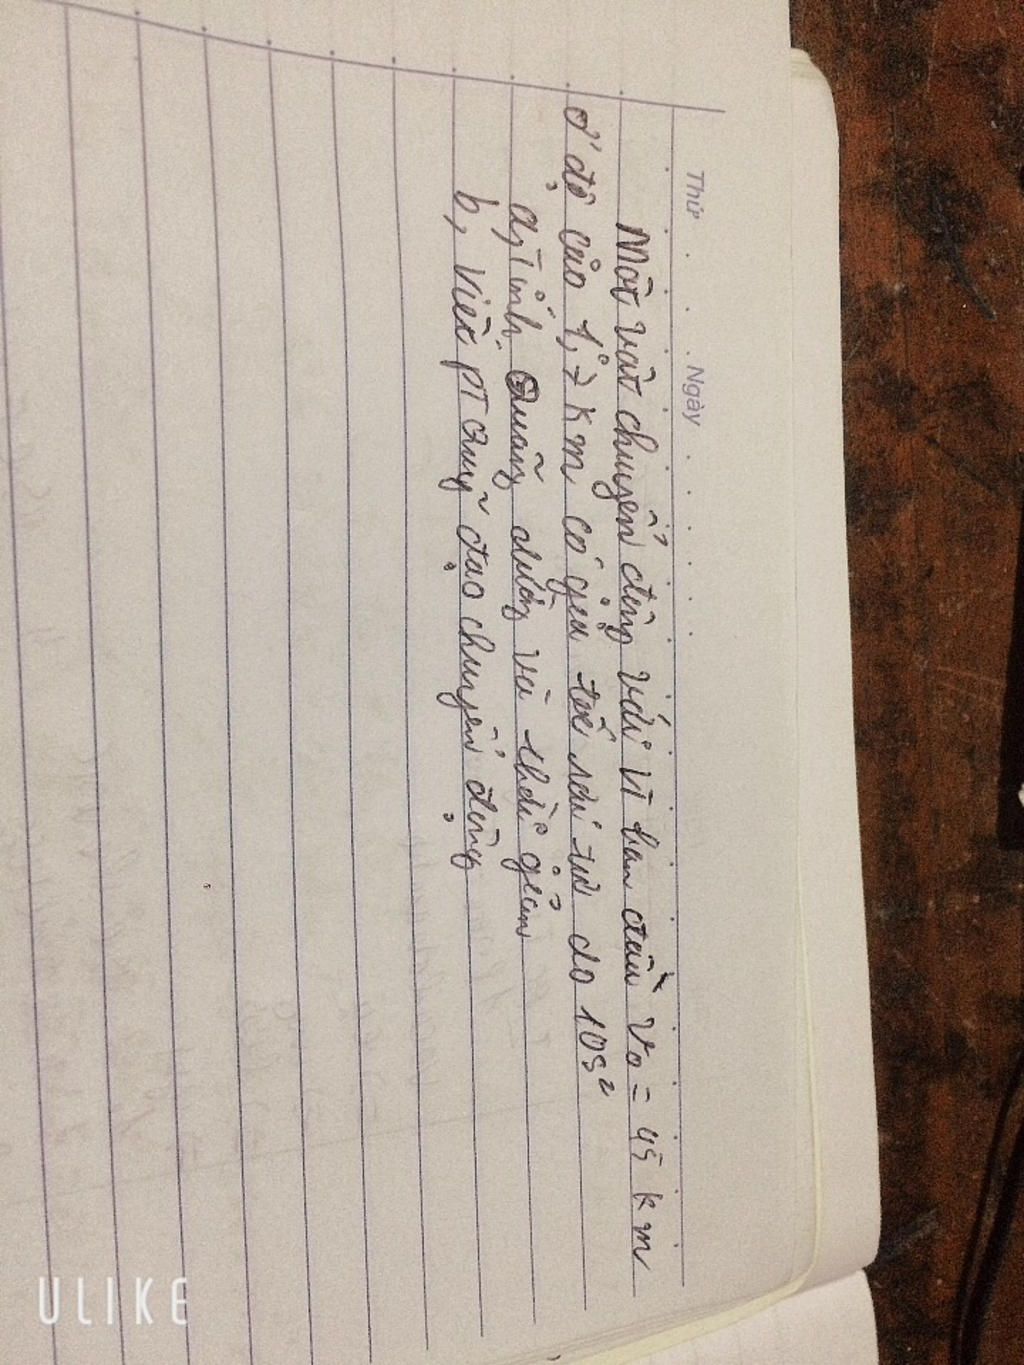 Thứ Ngày
Một vật chuyển động với vị ban đầu V0 = 45 km
ở độ cao 1,7 km có gia tốc rơi tự do 10s²
a, Tính Quãng đường và thời gian
b, Viết PT Quỹ đạo chuyển động
ULIKE